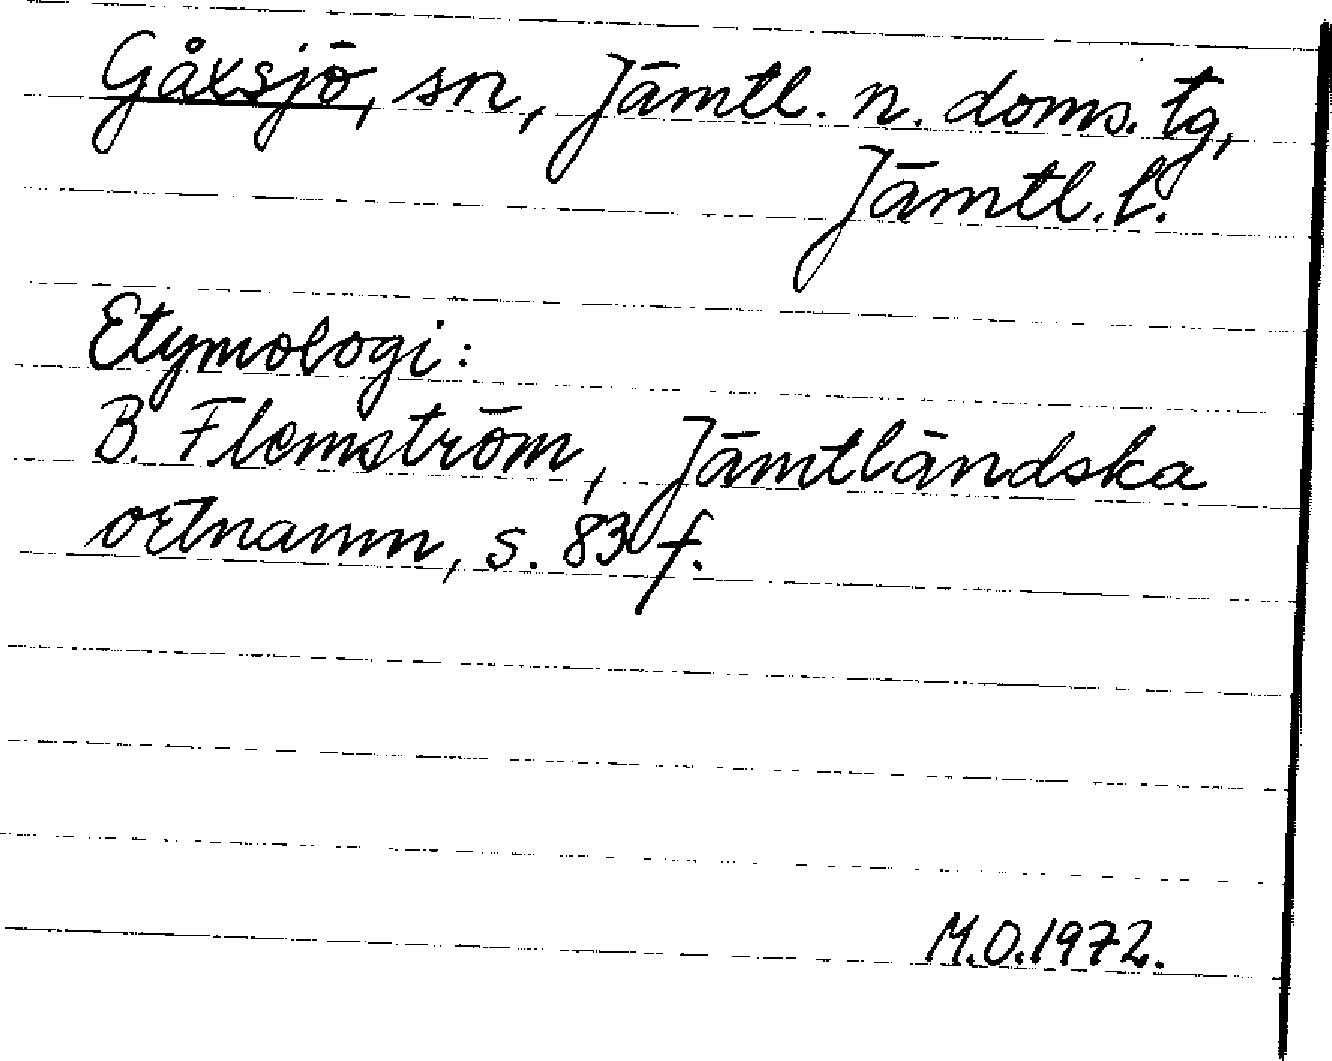 Gåxsjö, sn, Jämtl. n. doms. tg,
Jämtl. l.
Etymologi:
B. Flemström, Jämtländska
ortnamn, s. 83 f.
M.O.1972.